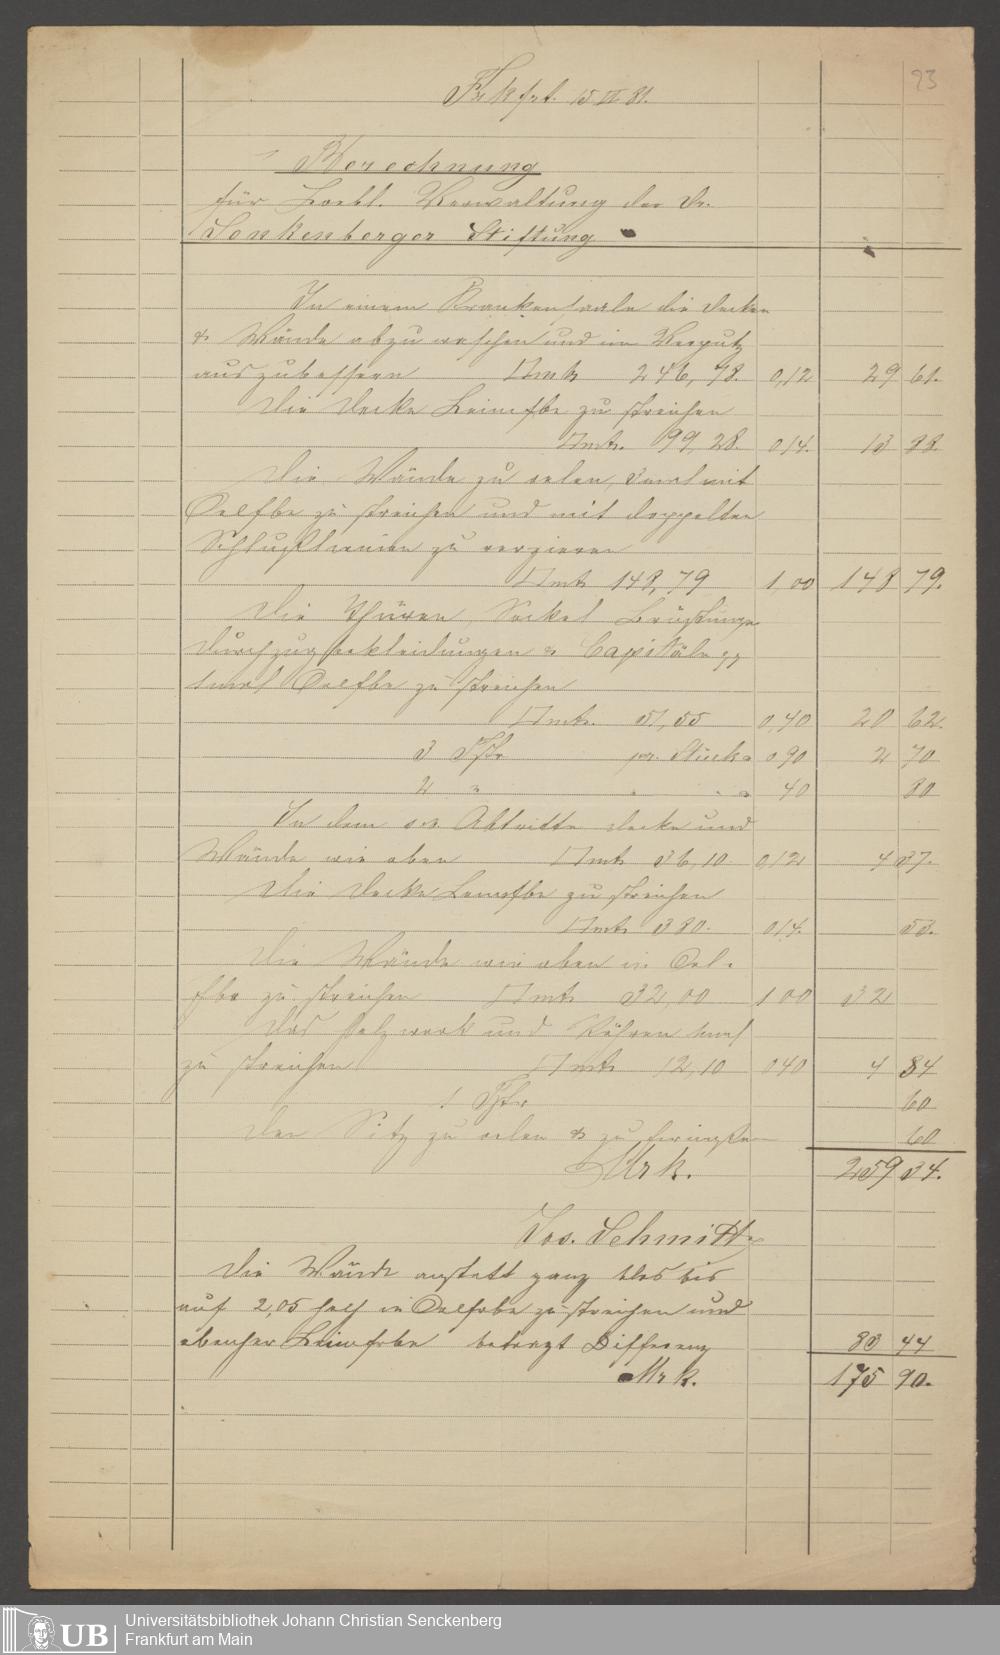 23
Frkfrt. 15 VI 81.
Berechnung
für Loebl. Verwaltung der Dr.
Senkenberger Stiftung
In einem Krankensaale die Decken
& Wände abzuwaschen und im Verputz
auszubessern □mtr 246,78. 0,12 29 61.
Die Decke Leimfbe zu streichen
□mtr. 99,28. 014. 13 88.
Die Wände zu oelen, 3mal mit
Oelfbe zu streichen und mit doppelten
Schlusslinien zu verzieren
□mtr 148,79 1,00 148 79.
Die Thüren, Sockel Brüstungen
Durchzugbekleidungen & Capitäle
1mal Oelfbe zu streichen
□mtr. 51,55 0,40 20 62.
3 Fstr pr. Stück 090 2 70
2 " " " 40 80
In dem Abtritte Decke und
Wände wie oben □mtr 36,10. 0,12 4 37.
Die Decke Leimfbe zu streichen
□mtr 380. 014. 53.
Die Wände wie oben in Oel-
fbe zu streichen □mtr 32,00 100 32
Das Holzwerk und Röhren 1mal
zu streichen □mtr 12,10 040 4 84
1 Fstr 60
Den Sitz zu oelen & zu 60
Mrk. 259 34.
Jos. Schmitt
Die Wände anstatt ganz blos bis
auf 2,05 hoch in Oelfarbe zu streichen und
oberher Leimfarbe betragt Differenz 83 44
Mrk. 175 90.
Universitätsbibliothek Johann Christian Senckenberg
Frankfurt am Main
UB